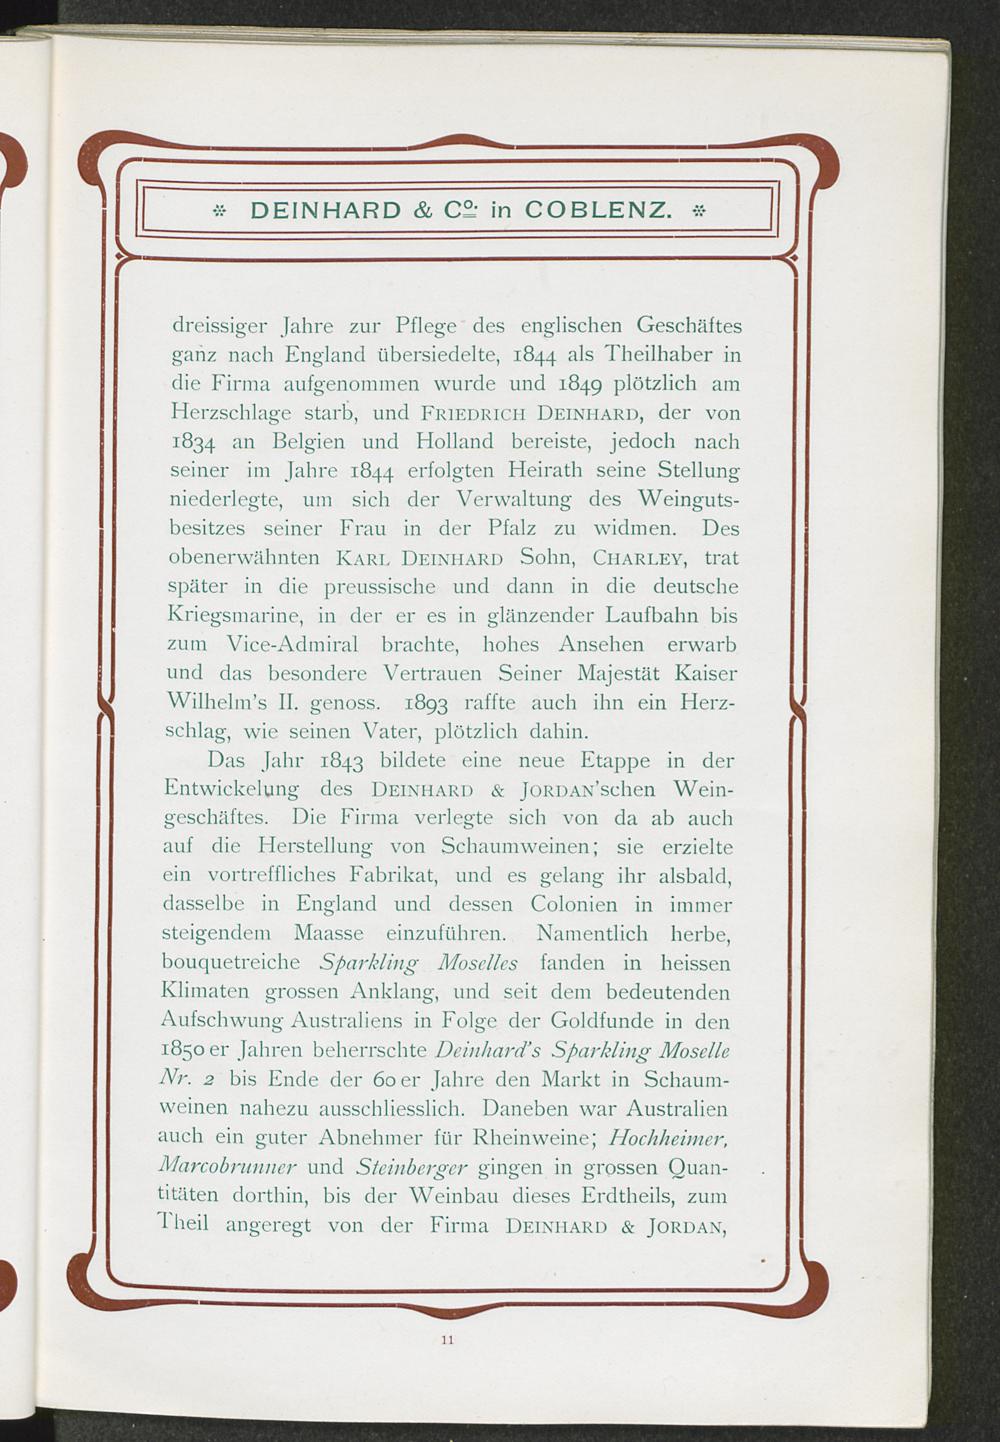 * DEINHARD & Co. in COBLENZ. *
dreissiger Jahre zur Pflege des englischen Geschäftes
ganz nach England übersiedelte, 1844 als Theilhaber in
die Firma aufgenommen wurde und 1849 plötzlich am
Herzschlage starb, und FRIEDRICH DEINHARD, der von
1834 an Belgien und Holland bereiste, jedoch nach
seiner im Jahre 1844 erfolgten Heirath seine Stellung
niederlegte, um sich der Verwaltung des Weinguts-
besitzes seiner Frau in der Pfalz zu widmen. Des
obenerwähnten KARL DEINHARD Sohn, CHARLEY, trat
später in die preussische und dann in die deutsche
Kriegsmarine, in der er es in glänzender Laufbahn bis
zum Vice-Admiral brachte, hohes Ansehen erwarb
und das besondere Vertrauen Seiner Majestät Kaiser
Wilhelm's II. genoss. 1893 raffte auch ihn ein Herz-
schlag, wie seinen Vater, plötzlich dahin.
Das Jahr 1843 bildete eine neue Etappe in der
Entwickelung des DEINHARD & JORDAN'schen Wein-
geschäftes. Die Firma verlegte sich von da ab auch
auf die Herstellung von Schaumweinen; sie erzielte
ein vortreffliches Fabrikat, und es gelang ihr alsbald,
dasselbe in England und dessen Colonien in immer
steigendem Maasse einzuführen. Namentlich herbe,
bouquetreiche Sparkling Moselles fanden in heissen
Klimaten grossen Anklang, und seit dem bedeutenden
Aufschwung Australiens in Folge der Goldfunde in den
1850er Jahren beherrschte Deinhard's Sparkling Moselle
Nr. 2 bis Ende der 60er Jahre den Markt in Schaum-
weinen nahezu ausschliesslich. Daneben war Australien
auch ein guter Abnehmer für Rheinweine; Hochheimer,
Marcobrunner und Steinberger gingen in grossen Quan-
titäten dorthin, bis der Weinbau dieses Erdtheils, zum
Theil angeregt von der Firma DEINHARD & JORDAN,
11